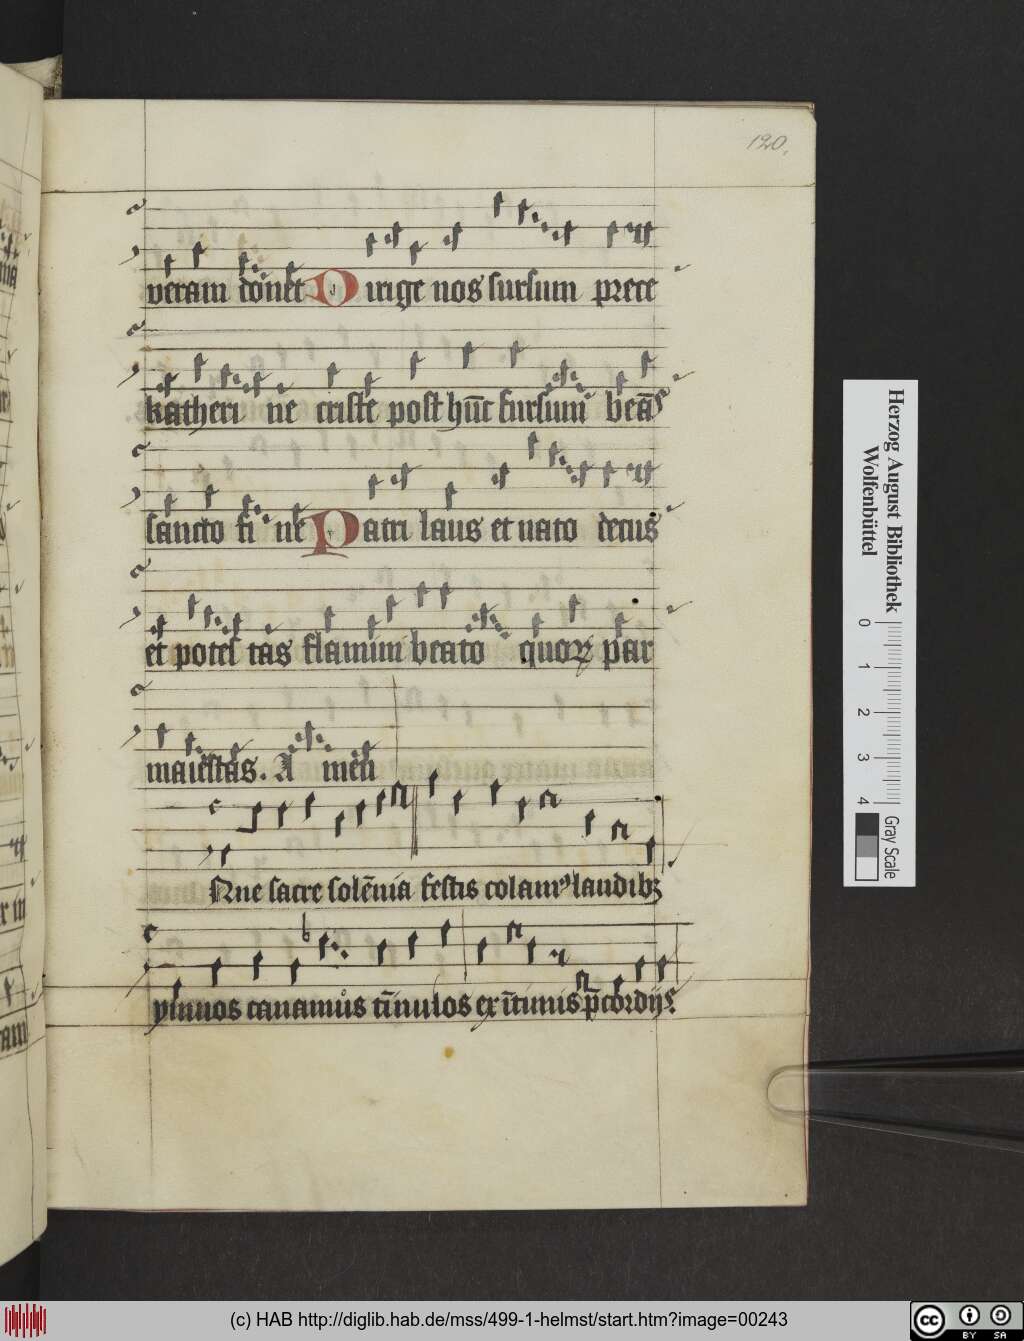 120.
veram donet Dirige nos sursum prece
katheri ne criste post hūc cursum bea
sancto fi ne Patri laus et nato decus
et potes tas flamini beato quoꝝ par
maiestas. A men
Aue sacre solēnia festis colamꝰ laudibꝫ
ymnos canamus tīnulos ex ītimis p̄cordijs
Herzog August Bibliothek
Wolfenbüttel
0 1 2 3 4
Gray Scale
(c) HAB http://diglib.hab.de/mss/499-1-helmst/start.htm?image=00243
cc BY SA